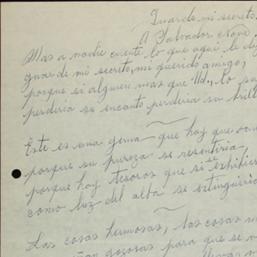 Guarde mi secreto,
A Salvador
Mas a nadie cuente lo que aquí le di
guarde mi secreto, mi querido amigo,
porque si alguien mas que Ud. lo sa
perdería su encanto, perdería su brill
Este es una gema que hay que
porque su pureza se resentiría,
porque hay tesoros que si se exhibier
como luz del alba se extinguiría
Las cosas hermosas, las cosas
gozosas para que se